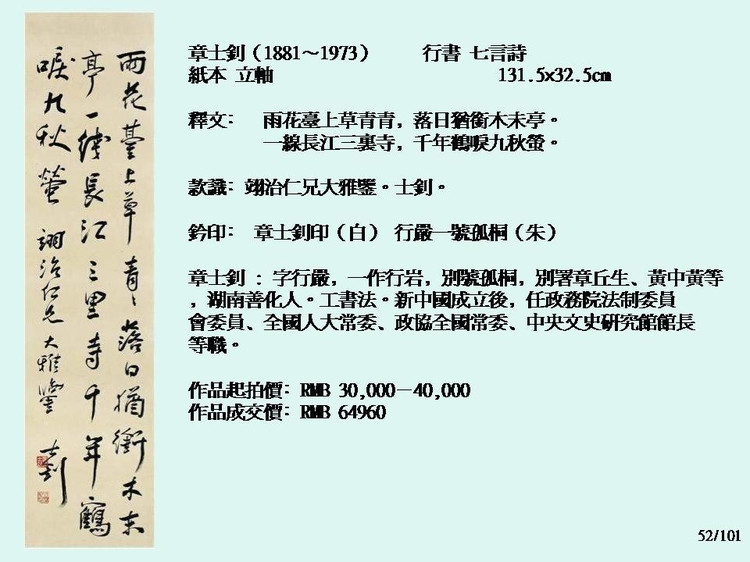 雨花臺上草青青落日猶銜木末
亭一綫長江三里寺千年鶴
唳九秋螢 翊治仁兄大雅鑒 士釗
章士釗（1881～1973） 行書 七言詩
紙本 立軸 131.5x32.5cm
釋文: 雨花臺上草青青，落日猶銜木未亭。
一線長江三裏寺，千年鶴唳九秋螢。
款識: 翊治仁兄大雅鑒。士釗。
鈐印: 章士釗印（白） 行嚴一號孤桐（朱）
章士釗 : 字行嚴，一作行岩，別號孤桐，別署章丘生、黃中黃等
，湖南善化人。工書法。新中國成立後，任政務院法制委員
會委員、全國人大常委、政協全國常委、中央文史研究館館長
等職。
作品起拍價: RMB 30,000－40,000
作品成交價: RMB 64960
52/101